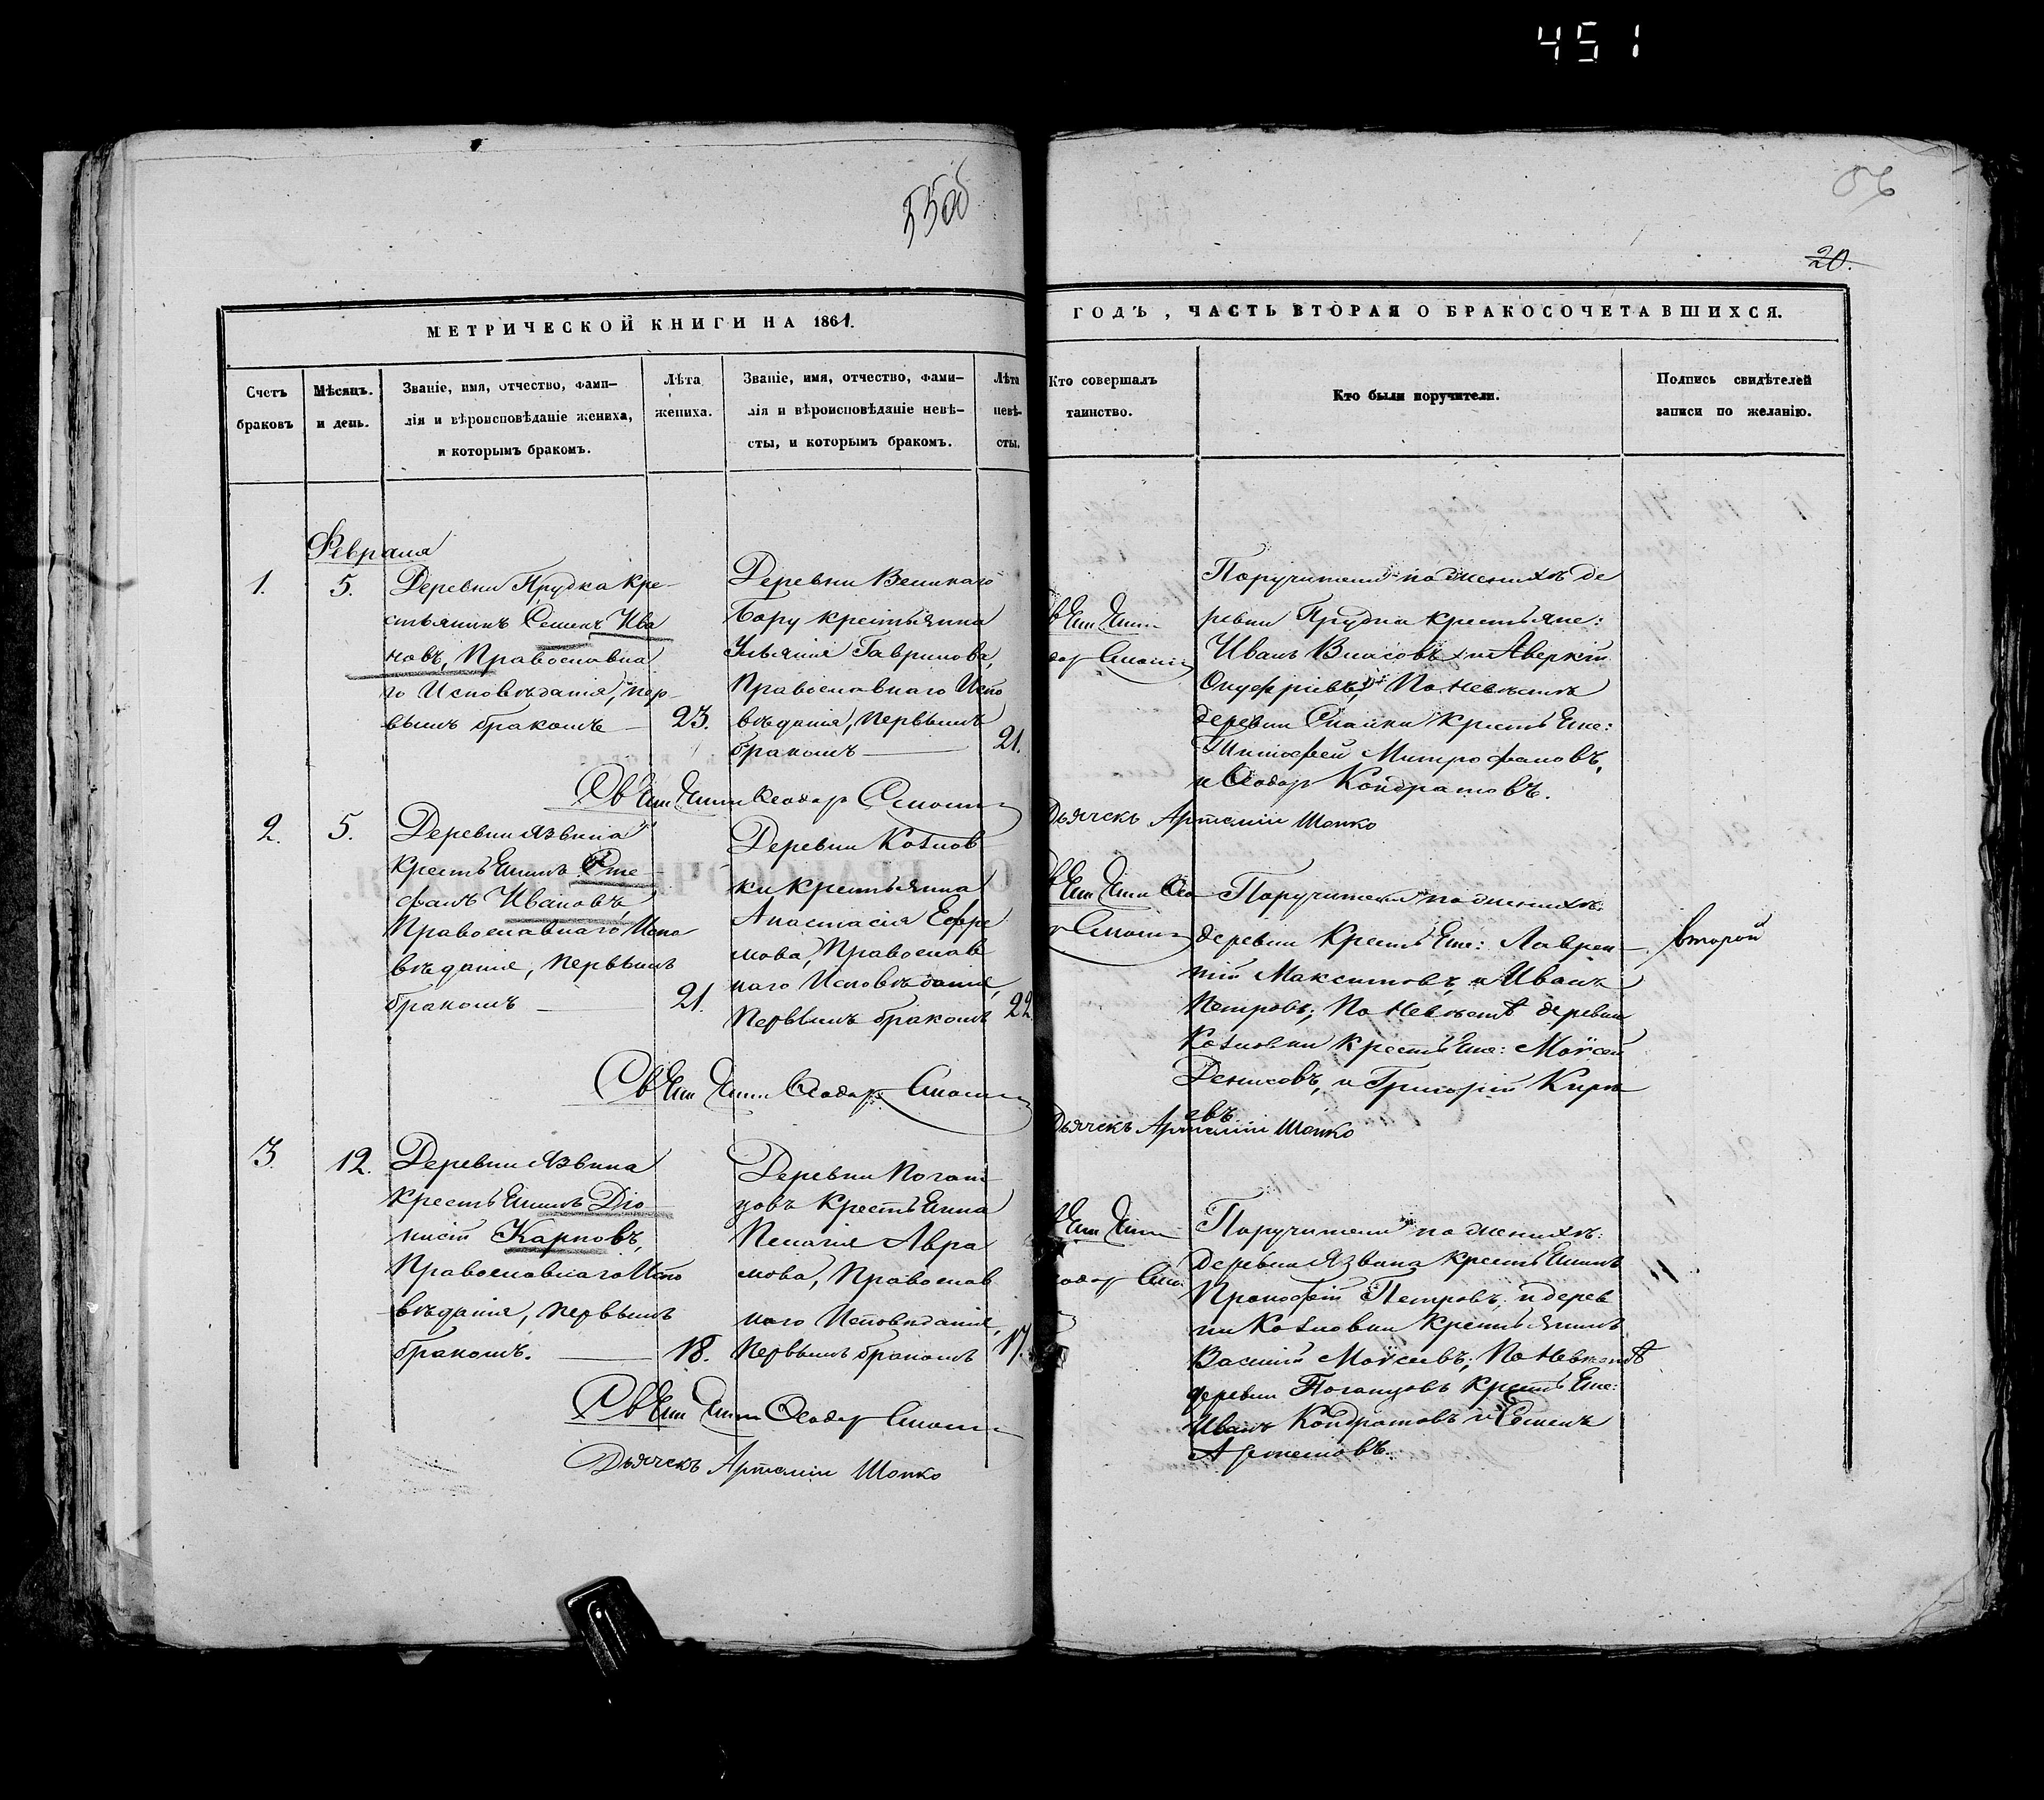 451
55об
56
20.
МЕТРИЧЕСКОЙ КНИГИ НА 1861.
ГОДЪ, ЧАСТЬ ВТОРАЯ О БРАКОСОЧЕТАВШИХСЯ.
Счетъ
браковъ
Мѣсяцъ.
и день.
Званіе, имя, отчество, фами-
лія и вѣроисповѣданіе жениха,
и которымъ бракомъ.
Лѣта
жениха.
Званіе, имя, отчество, фами-
лія и вѣроисповѣданіе невѣ-
сты, и которымъ бракомъ.
Лѣта
невѣ-
сты.
Кто совершалъ
таинство.
Кто были поручители.
Подпись свидѣтелей
записи по желанію.
Февраля
1.
5.
Деревни Прудка кре-
стьянинъ Семенъ Ива
новъ, Православна
го Исповѣданія, пер-
вымъ бракомъ
23.
Деревни Великаго
Бору крестьянка
Ульяния Гаврилова,
Православнаго Испо
вѣданія, первымъ
бракомъ
21.
Поручители по женихѣ де
ревни Прудка крестьяне:
Иванъ Власовъ и Аверкій
Онуфріевъ; По невѣстѣ
деревни крестьяне:
Тимофей Митрофановъ,
и Ѳеодоръ Кондратовъ.
Ѳеодоръ
Дьячекъ Артемій Шопко
2.
5.
Деревни Язвина
крестьянинъ Сте
фанъ Ивановъ,
Православнаго Испо
вѣданія, первымъ
бракомъ
21.
Деревни Козлов
ки крестьянка
Анастасія Ефре
мова, Православ
наго Исповѣданія,
первымъ бракомъ
22.
Поручители по женихѣ:
деревни крестьяне: Лаврен
тій Максимовъ, и Иванъ
Петровъ; По невѣстѣ деревни
Козловки крестьяне: Моѵсей
Денисовъ, и Григорій Кире
евъ.
второй
Ѳеодоръ
Дьячекъ Артемій Шопко
3.
12.
Деревни Язвина
крестьянинъ Діо
нисій Карповъ,
Православнаго Испо
вѣданія, первымъ
бракомъ.
18.
Деревни Поган
цовъ крестьянка
Пелагія Авра
мова, Православ
наго Исповѣданія,
первымъ бракомъ
17.
Поручители по женихѣ:
деревни Язвина крестьянинъ
Прокофій Петровъ, и дерев
ни Козловки крестьянинъ
Василій Моѵсеевъ; По невѣстѣ
деревни Поганцовъ крестьяне:
Иванъ Кондратовъ и Семенъ
Ѳеодоръ
Дьячекъ Артемій Шопко